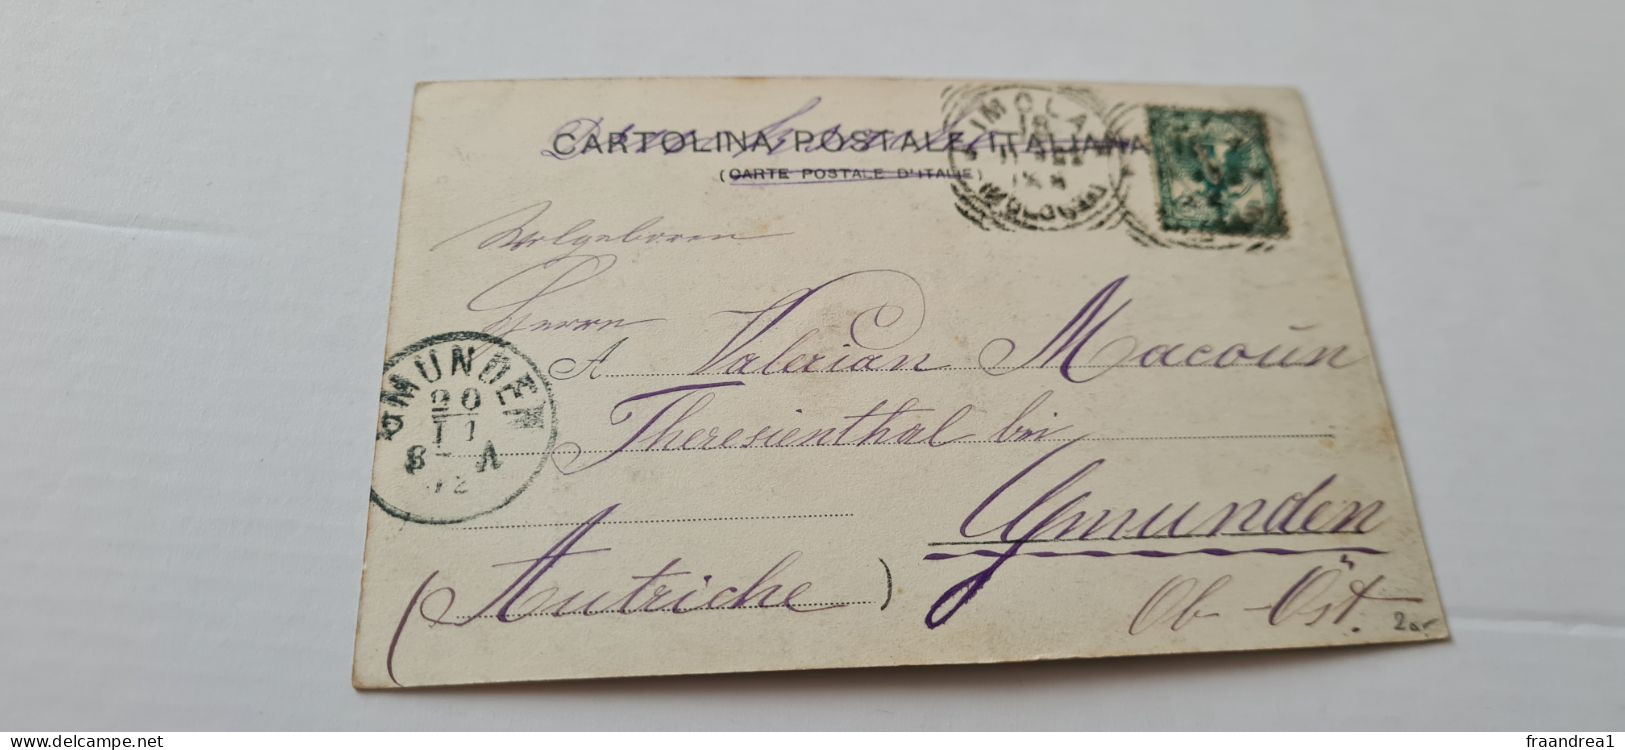 CARTOLINA POSTALE ITALIANA
(CARTE POSTALE D'ITALIE)
IMOLA
18
11
(BOLOGNA)
Wolgeboren
Herrn
A Valerian Macoun
Theresienthal bei
Gmunden
(Autriche)
Ob-Öst.
GMUNDEN
20
11
8-A
20-
fraandrea1
www.delcampe.net